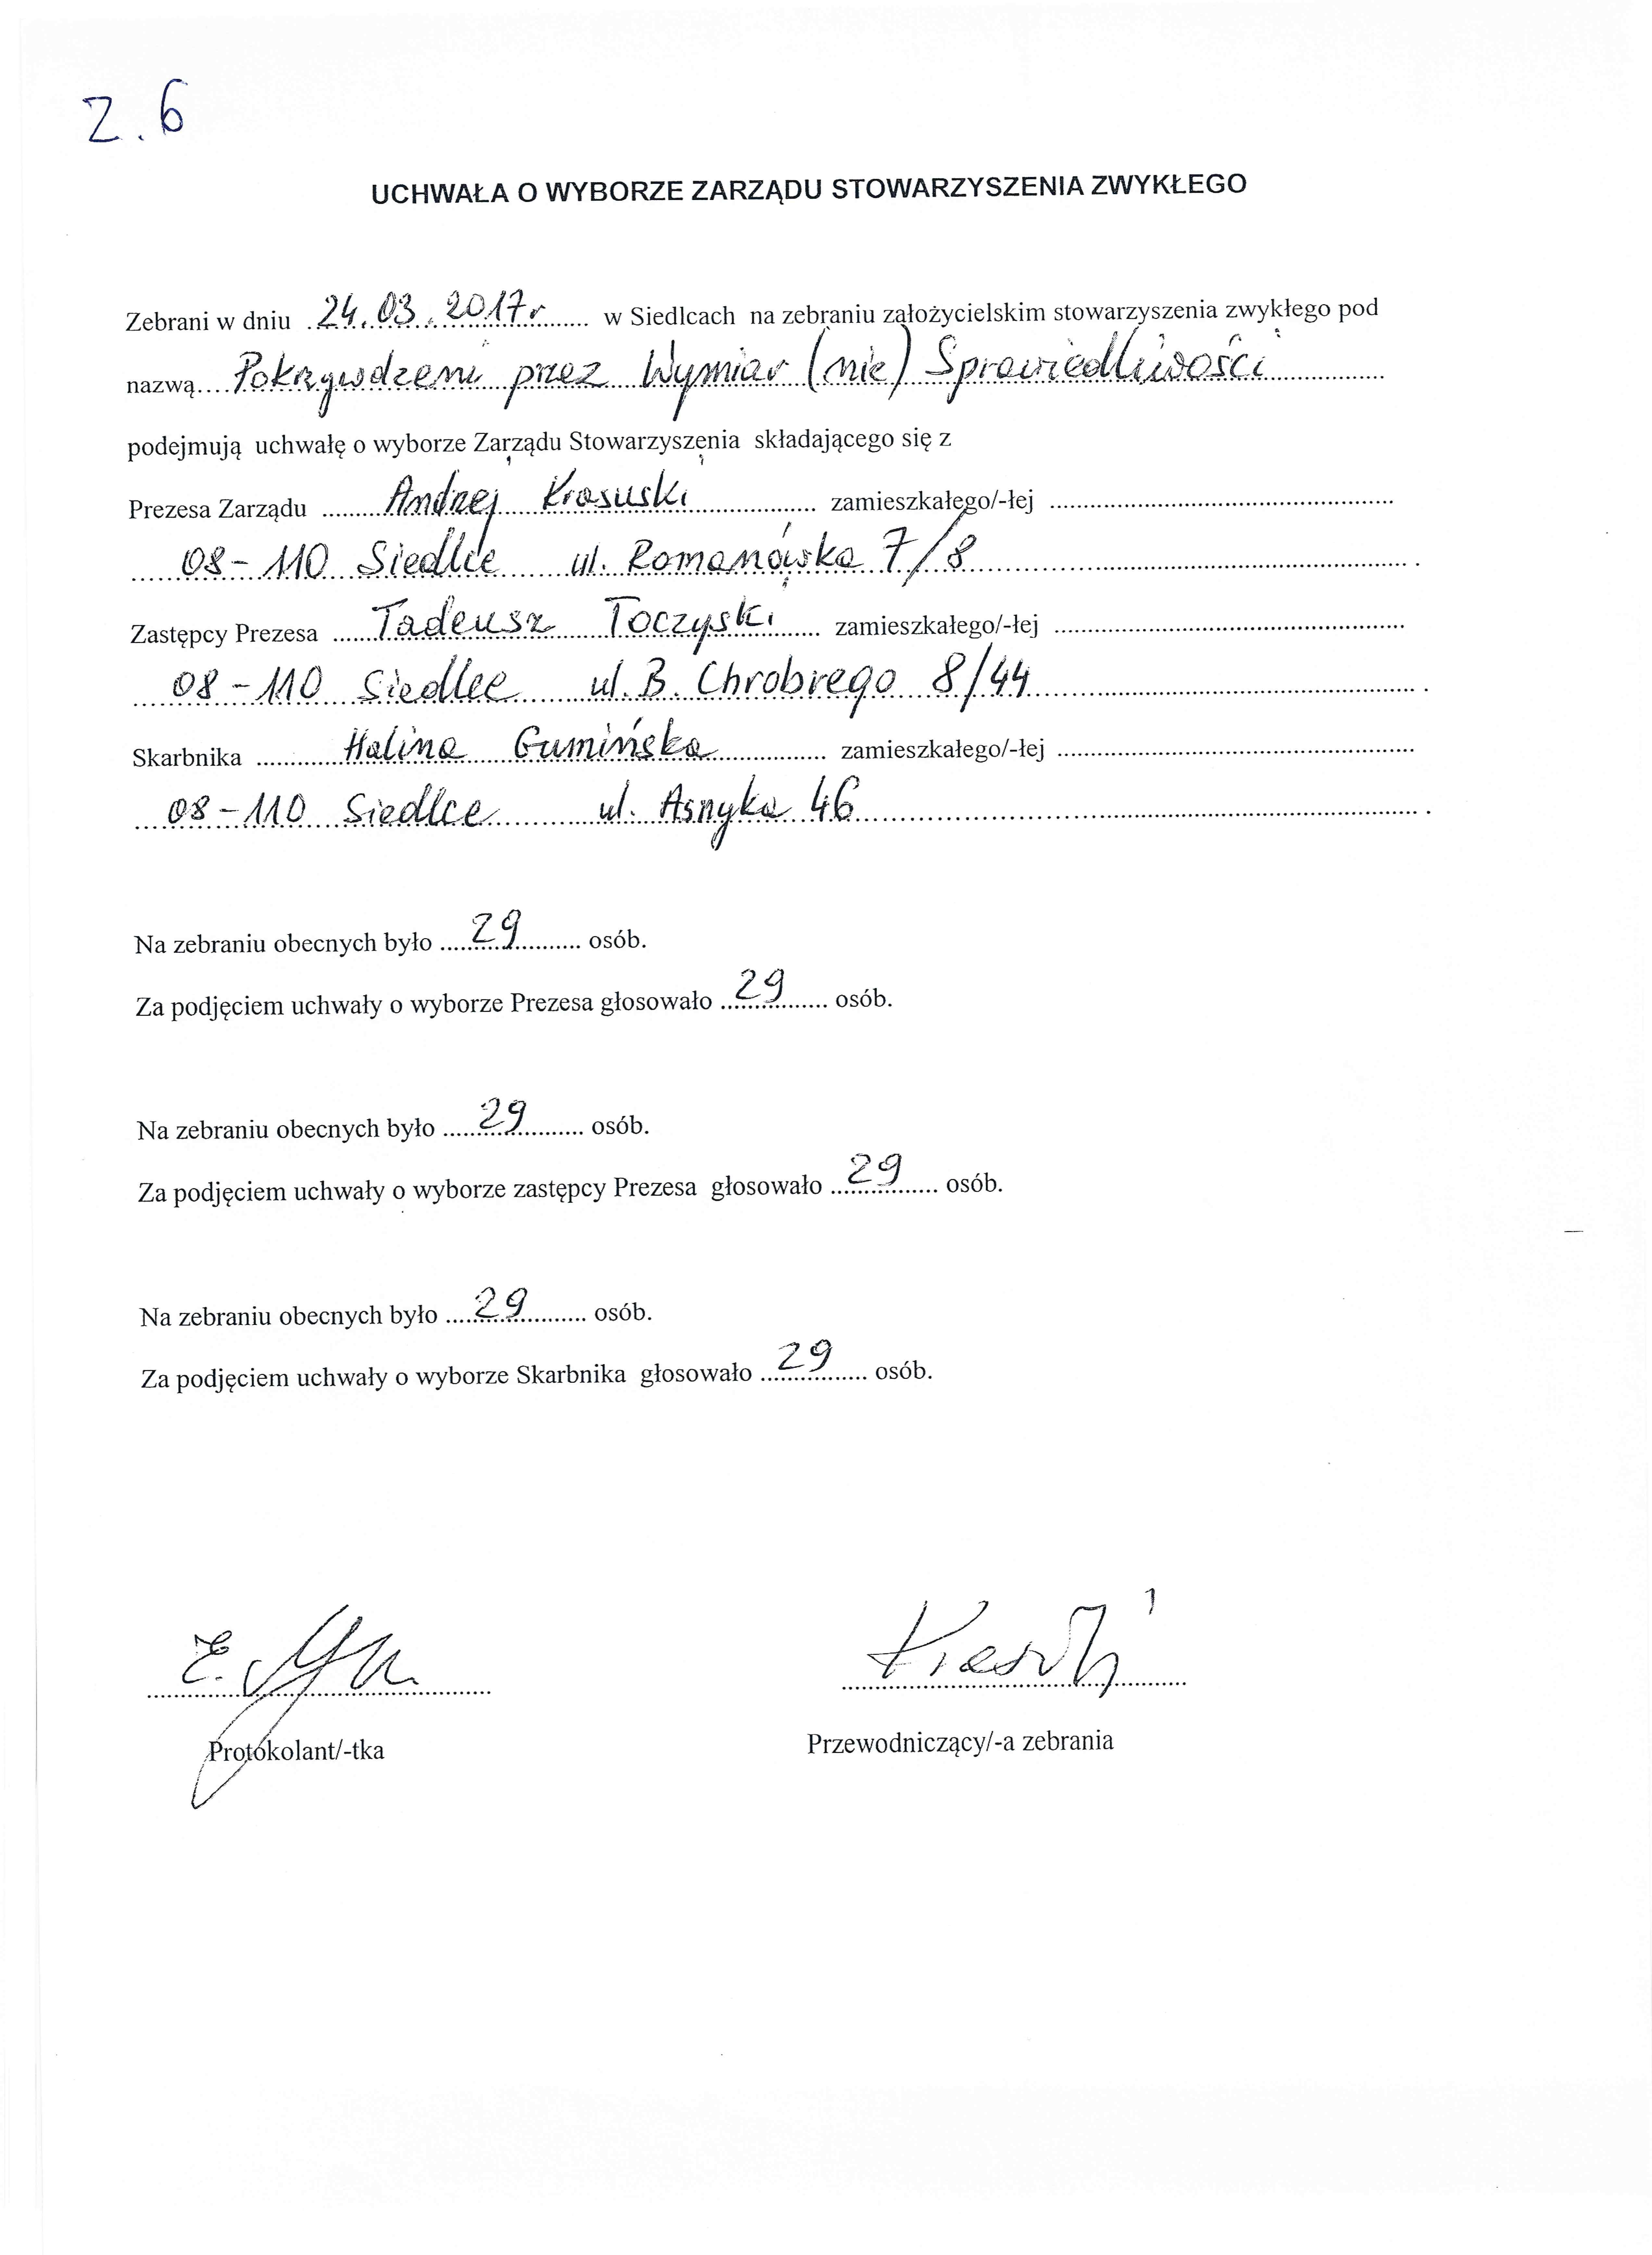 Z.6
UCHWAŁA O WYBORZE ZARZĄDU STOWARZYSZENIA ZWYKŁEGO
Zebrani w dniu 24.03.2017r w Siedlcach na zebraniu założycielskim stowarzyszenia zwykłego pod
nazwą Pokrzywdzeni przez Wymiar (nie) Sprawiedliwości
podejmują uchwałę o wyborze Zarządu Stowarzyszenia składającego się z
Prezesa Zarządu Andrzej Krasuski zamieszkałego/-łej
08-110 Siedlce ul. Romanówka 7/8
Zastępcy Prezesa Tadeusz Toczyski zamieszkałego/-łej
08-110 Siedlce ul. B. Chrobrego 8/44
Skarbnika Halina Gumińska zamieszkałego/-łej
08-110 Siedlce ul. Asnyka 46
Na zebraniu obecnych było 29 osób.
Za podjęciem uchwały o wyborze Prezesa głosowało 29 osób.
Na zebraniu obecnych było 29 osób.
Za podjęciem uchwały o wyborze zastępcy Prezesa głosowało 29 osób.
Na zebraniu obecnych było 29 osób.
Za podjęciem uchwały o wyborze Skarbnika głosowało 29 osób.
Protokolant/-tka Przewodniczący/-a zebrania